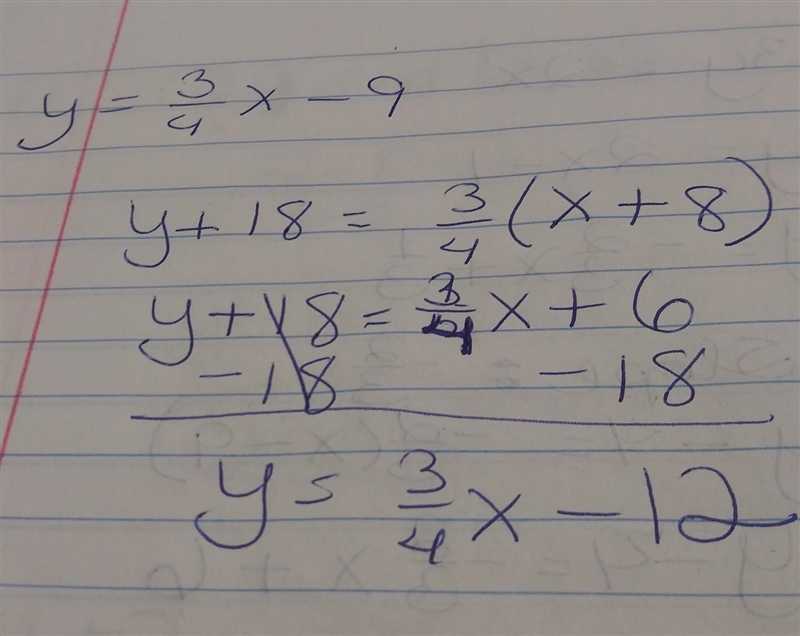 y = 3/4 x - 9
y + 18 = 3/4 (x + 8)
y + 18 = 3/4 x + 6
- 18 - 18
y = 3/4 x - 12